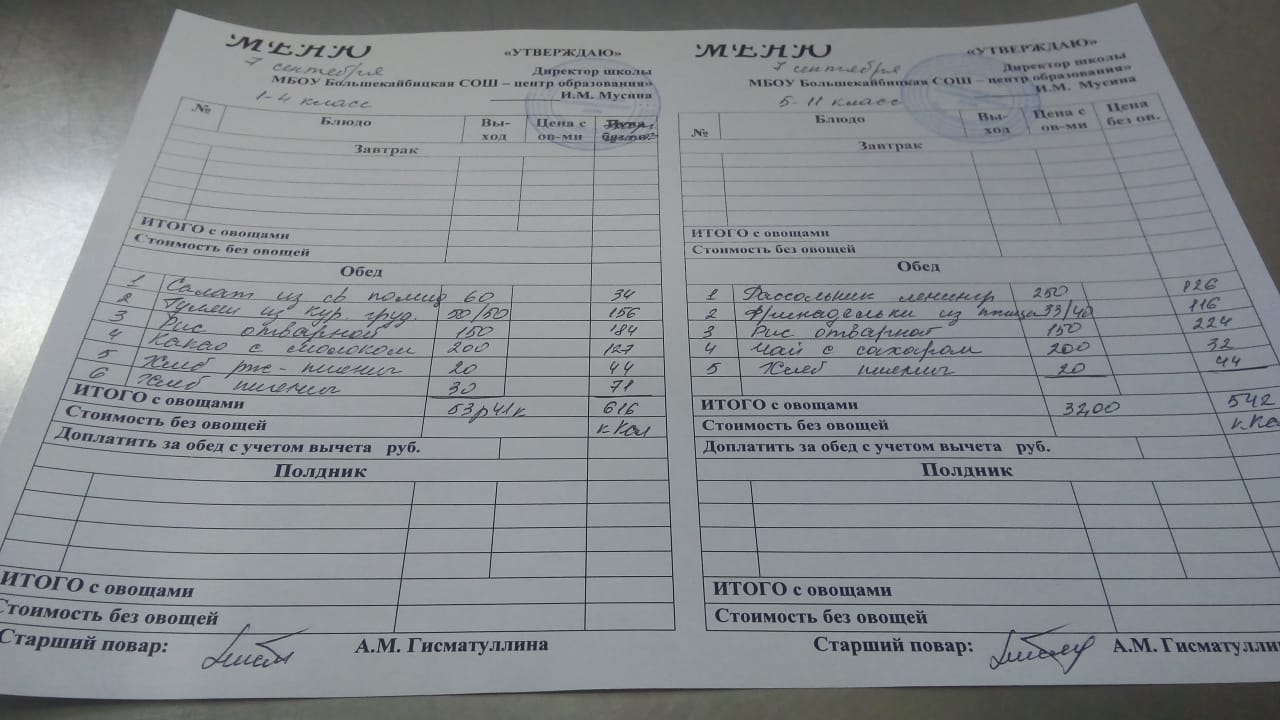 МЕНЮ «УТВЕРЖДАЮ»
7 сентября Директор школы
МБОУ Большекайбицкая СОШ – центр образования»
1-4 класс И.М. Мусина
№ Блюдо Вы-ход Цена с ов-ми
Завтрак
ИТОГО с овощами
Стоимость без овощей
Обед
1 Салат из св помид 60 34
2 Гуляш из кур. груд. 50/50 156
3 Рис отварной 150 184
4 Какао с молоком 200 127
5 Хлеб рж-пшенич 20 44
6 Хлеб пшенич 30 71
ИТОГО с овощами 53р41к 616
Стоимость без овощей кКал
Доплатить за обед с учетом вычета руб.
Полдник
ИТОГО с овощами
Стоимость без овощей
Старший повар: А.М. Гисматуллина
МЕНЮ «УТВЕРЖДАЮ»
7 сентября Директор школы
МБОУ Большекайбицкая СОШ – центр образования»
5-11 класс И.М. Мусина
№ Блюдо Вы-ход Цена с ов-ми Цена без ов.
Завтрак
ИТОГО с овощами
Стоимость без овощей
Обед
1 Рассольник ленингр 250 126
2 Фрикадельки из птицы 33/40 116
3 Рис отварной 150 224
4 Чай с сахаром 200 32
5 Хлеб пшенич 20 44
ИТОГО с овощами 32,00 542
Стоимость без овощей кКал
Доплатить за обед с учетом вычета руб.
Полдник
ИТОГО с овощами
Стоимость без овощей
Старший повар: А.М. Гисматуллин